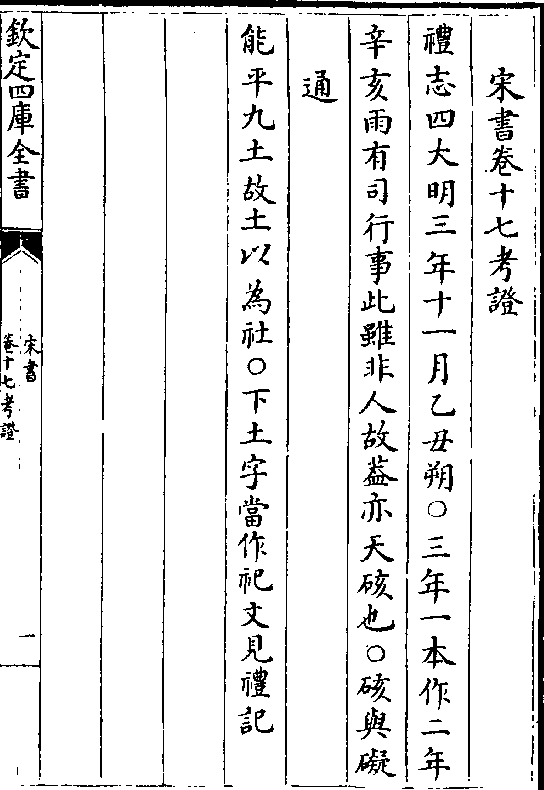 宋書卷十七考證
禮志四大明三年十一月乙丑朔○三年一本作二年
辛亥雨有司行事此雖非人故葢亦天硋也○硋與礙
通
能平九土故土以為社○下土字當作祀文見禮記
欽定四庫全書
宋書
卷十七考證
一